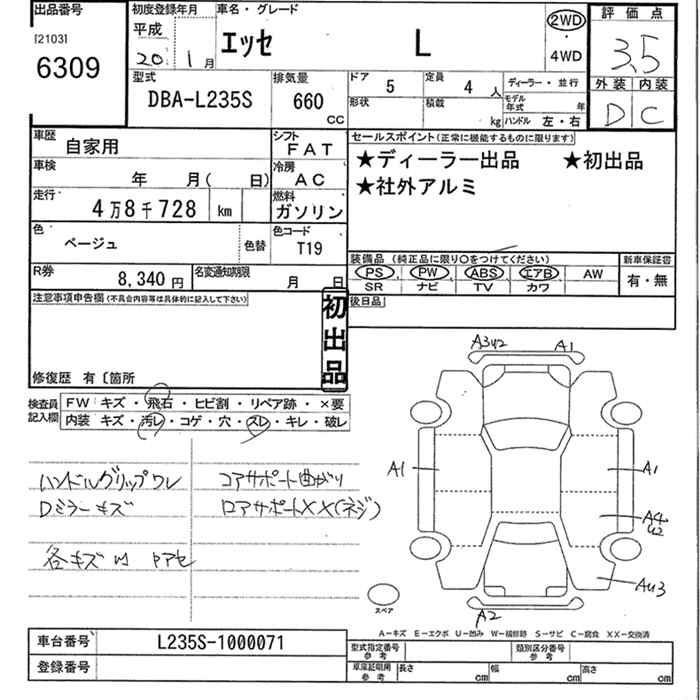 出品番号 初度登録年月 車名・グレード 評価点
[2103] 平成 2WD
6309 20年 1月 エッセ L 4WD 3.5
型式 排気量 ドア 5 定員 4人 ディーラー・並行 外装 内装
DBA-L235S 660 CC 形状 積載 kg モデル年式 年 D C
ハンドル 左・右
車歴 自家用 シフト FAT セールスポイント(正常に機能するものに限ります)
車検 年 月( 日) 冷房 AC ★ディーラー出品 ★初出品
走行 4万8千728 km 燃料 ガソリン ★社外アルミ
色 ベージュ 色替 色コード T19
装備品 (純正品に限り○をつけてください) 新車保証書
R券 8,340円 名変通知期限 月 日 PS PW ABS エアB AW 有・無
SR ナビ TV カワ
注意事項申告欄(不具合内容等は具体的に記入して下さい) 初出品 後日品
修復歴 有 〔箇所
検査員記入欄 FW キズ・飛石・ヒビ割・リペア跡・×要
内装 キズ・汚レ・コゲ・穴・スレ・キレ・破レ
A3U2 A1
ハンドルグリップワレ コアサポート曲がり A1 A1
Dミラーキズ ロアサポートXX(ネジ)
A4
U2
各キズ凹 Pアセ
AU3
スペア A2
A-キズ E-エクボ U-凹み W-補修跡 S-サビ C-腐食 XX-交換済
車台番号 L235S-1000071 型式指定番号 参考 類別区分番号 参考
登録番号 車庫証明用 参考 長さ cm 幅 cm 高さ cm